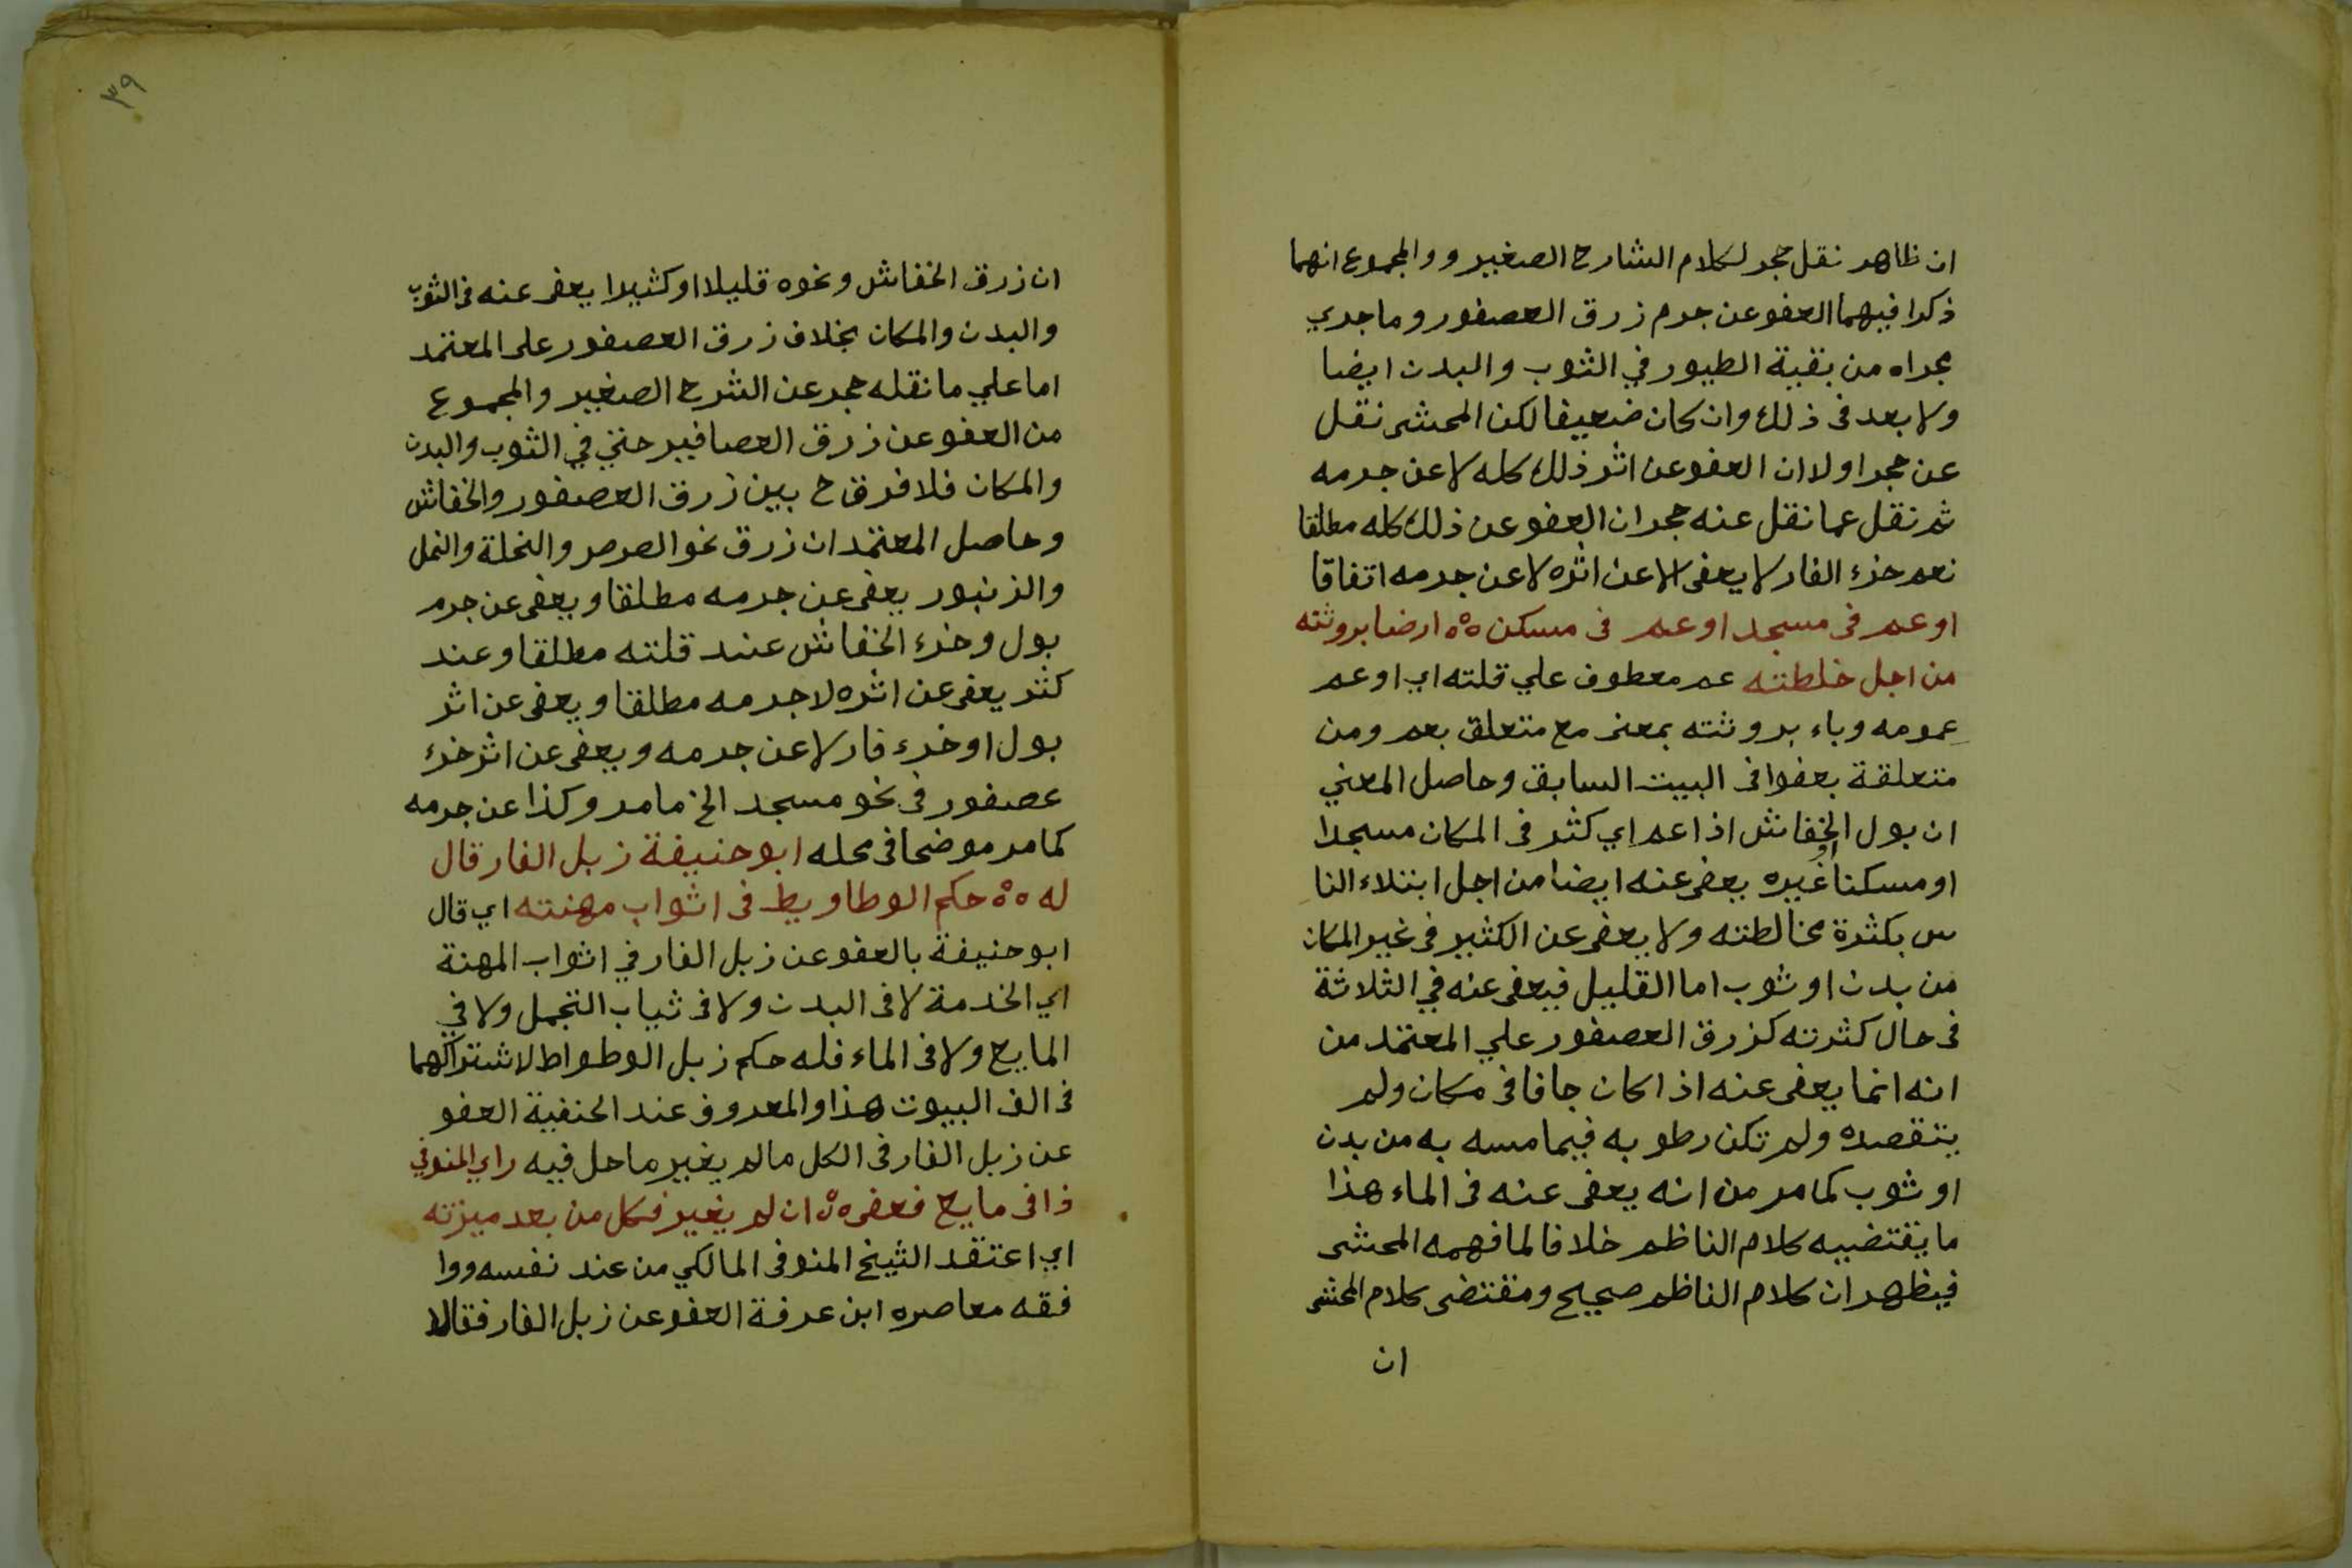 ان ظاهر نقل حجر لكلام الشارح الصغير ووالمجموع انهما
ذكرا فيهما العفو عن جرم زرق العصفور وما جري
مجراه من بقية الطيور في الثوب والبدن ايضا
ولا بعد فى ذلك وان كان ضعيفا لكن المحشى نقل
عن حجر اولا ان العفو عن اثر ذلك كله لا عن جرمه
ثم نقل عما نقل عنه حجر ان العفو عن ذلك كله مطلقا
نعم خرء الفار لا يعفى الا عن اثره لا عن جرمه اتفاقا
او عم فى مسجد او عم فى مسكن ٥ْ٥ ارضا بروثته
من اجل خلطته عم معطوف علي قلته اي او عم
عمومه وباء بروثته بمعنى مع متعلق بعم ومن
متعلقة بعفوا فى البيت السابق وحاصل المعني
ان بول الخفاش اذا عم اي كثر فى المكان مسجدا
او مسكنا او غيره يعفى عنه ايضا من اجل ابتلاء النا
س بكثرة مخالطته ولا يعفى عن الكثير فى غير المكان
من بدن او ثوب اما القليل فيعفى عنه في الثلاثة
فى حال كثرته كزرق العصفور علي المعتمد من
انه انما يعفى عنه اذا كان جافا فى مكان ولم
يتقصده ولم تكن رطوبه فيما مسه به من بدن
او ثوب كما مر من انه يعفى عنه فى الماء هذا
ما يقتضيه كلام الناظم خلافا لما فهمه المحشى
فيظهر ان كلام الناظم صحيح ومقتضى كلام المحشى
ان
٣٩
ان زرق الخفاش ونحوه قليلا او كثيرا يعفى عنه فى الثوب
والبدن والمكان بخلاف زرق العصفور على المعتمد
اما علي ما نقله حجر عن الشرح الصغير والمجموع
من العفو عن زرق العصافير حتي في الثوب والبدن
والمكان فلا فرق ح بين زرق العصفور والخفاش
وحاصل المعتمد ان زرق نحو الصرصر والنحلة والنمل
والزنبور يعفى عن جرمه مطلقا ويعفى عن جرم
بول وخرء الخفاش عند قلته مطلقا وعند
كثر يعفى عن اثره لا جرمه مطلقا ويعفى عن اثر
بول او خرء فار لا عن جرمه ويعفى عن اثر خرء
عصفور فى نحو مسجد الخ ما مر وكذا عن جرمه
كما مر موضحا فى محله ابو حنيفة زبل الفار قال
له ٥ْ٥ حكم الوطاويط فى اثواب مهنته اي قال
ابو حنيفة بالعفو عن زبل الفار في اثواب المهنة
اي الخدمة لا فى البدن ولا فى ثياب التجمل ولا في
المايع ولا فى الماء فله حكم زبل الوطواط لاشتراكهما
فى الف البيوت هذا والمعروف عند الحنفية العفو
عن زبل الفار فى الكل ما لم يغير ما حل فيه راي المنوفي
ذا فى مايع فعفى ٥ْ٥ ان لم يغير فكل من بعد ميزته
اي اعتقد الشيخ المنوفى المالكي من عند نفسه ووا
فقه معاصره ابن عرفة العفو عن زبل الفار فقالا